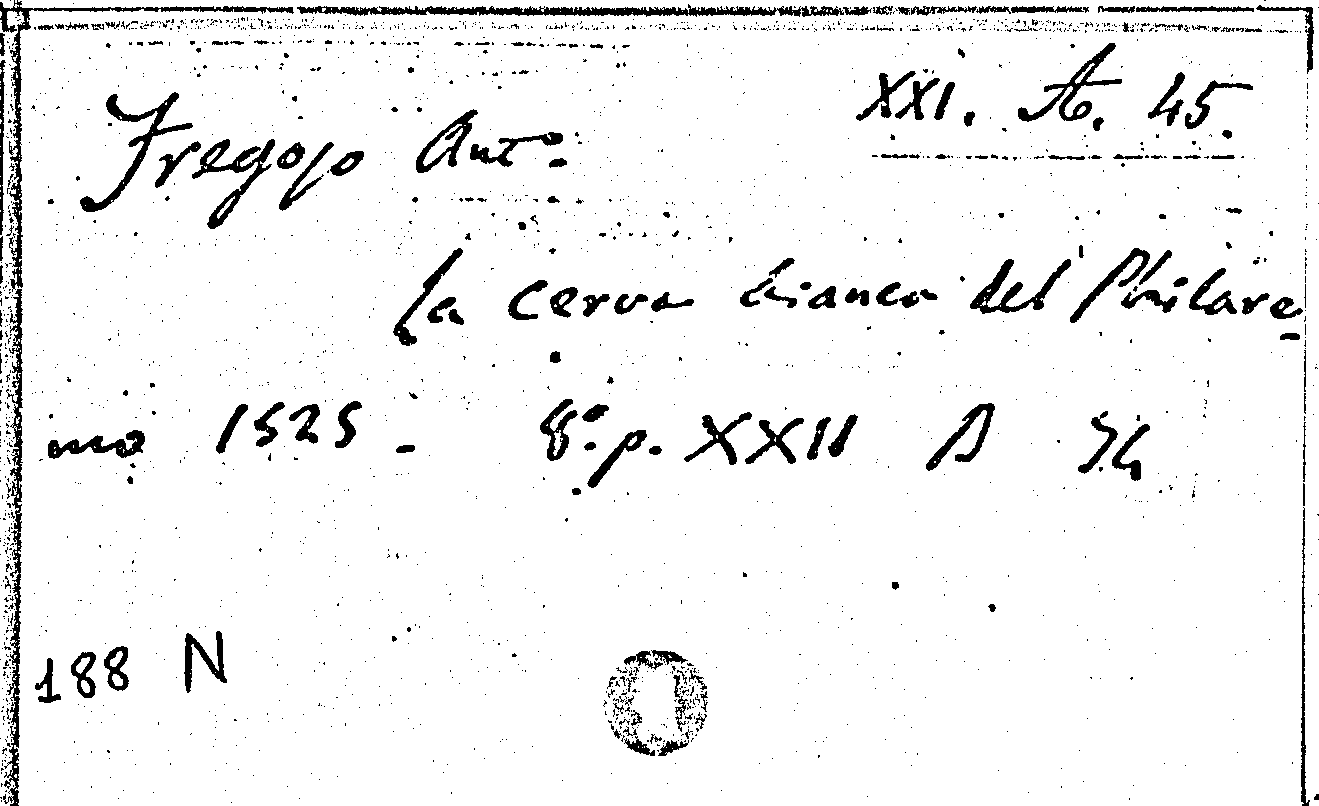 XXI. A. 45.
Fregoso Ant.º
La cerva bianca del Philare-
mo 1525 - 8º. p. XXII A 74
188 N